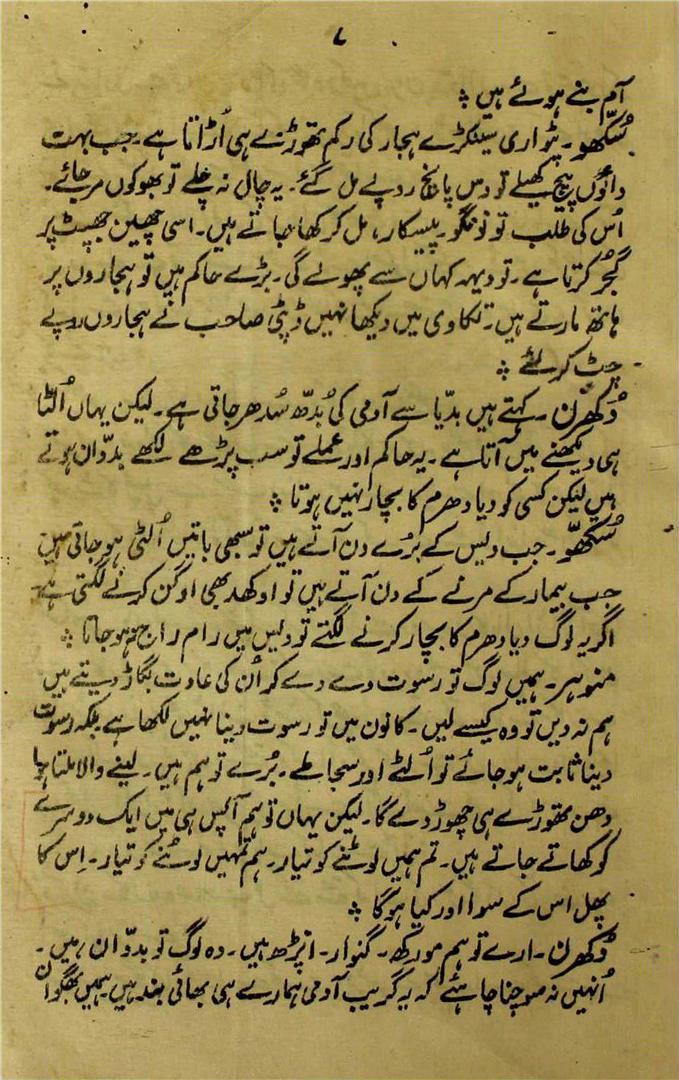 ۷
آم بنے ہوئے ہیں ؞
سُکھّو۔ پٹواری سینکڑے ہجار کی رکم تھوڑے ہی اُڑاتا ہے۔ جب بہت
داؤں پیچ کھیلے تو دس پانچ روپے مل گئے۔ یہ چال نہ چلے تو بھوکوں مر جائے۔
اُس کی طلب تو نومگو۔ پیسکار، مل کر کھا جاتے ہیں۔ اسی چھین جھپٹ پر
گُجر کرتا ہے۔ تو دیہہ کہاں سے پھولے گی۔ بڑے حاکم ہیں تو ہجاروں پر
ہاتھ مارتے ہیں۔ تکاوی میں دیکھا نہیں ڈپٹی صاحب نے ہجاروں روپے
چٹ کر لئے ؞
دُکھرن۔ کہتے ہیں بدّیا سے آدمی کی بُدّھ سُدھر جاتی ہے۔ لیکن یہاں اُلٹا
ہی دیکھنے میں آتا ہے۔ یہ حاکم اور عملے تو سب پڑھے لکھے بدّوان ہوتے
ہیں لیکن کسی کو دیا دھرم کا بچار نہیں ہوتا ؞
سُکھّو۔ جب دیس کے بُرے دن آتے ہیں تو سبھی باتیں اُلٹی ہو جاتی ہیں
جب بیمار کے مرنے کے دن آتے ہیں تو اوکھد بھی اوگن کرنے لگتی ہے۔
اگر یہ لوگ دیا دھرم کا بچار کرنے لگتے تو دیس میں رام راج نہ ہو جاتا ؞
منوہر۔ ہمیں لوگ تو رسوت دے دے کر اُن کی عادت بگاڑ دیتے ہیں
ہم نہ دیں تو وہ کیسے لیں۔ کانون میں تو رسوت دینا نہیں لکھا ہے بلکہ رسوت
دینا ثابت ہو جائے تو اُلٹے اور سجا ملے۔ بُرے تو ہم ہیں۔ لینے والا ملتا ہوا
دھن تھوڑے ہی چھوڑ دے گا۔ لیکن یہاں تو ہم آپس ہی میں ایک دوسرے
کو کھاتے جاتے ہیں۔ تم ہمیں لوٹنے کو تیار۔ ہم تمہیں لوٹنے کو تیار۔ اِس کا
پھل اس کے سوا اور کیا ہوگا ؞
دُکھرن۔ ارے تو ہم مورکھ۔ گنوار۔ انپڑھ ہیں۔ وہ لوگ تو بدّوان ہیں۔
اُنہیں نہ سوچنا چاہئے کہ یہ گریب آدمی ہمارے ہی بھائی بند ہیں۔ ہمیں بھگوان